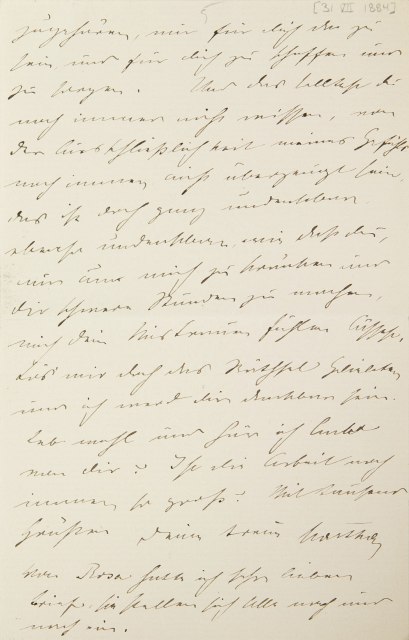 [31 VII 1884]
zugehören, nur für dich da zu
sein und für dich zu schaffen und
zu sorgen. Und das solltest du
noch immer nicht wissen, von
der Ausschließlichkeit meines Gefühls
noch immer nicht überzeugt sein,
das ist doch ganz undenkbar.
ebenso undenkbar, wie daß du,
nur um mich zu kränken und
dir schwere Stunden zu machen,
mich dein Mistrauen fühlen ließest.
Lös mir doch das Räthsel Geliebter
und ich werd dir dankbar sein.
Leb wohl und
von dir? Ist die Arbeit noch
immer so groß? Mit tausend
Grüßen Deine treue Martha
Von Rosa hatte ich sehr lieben
Brief. Sie stellen sich Alle nach und
nach ein.